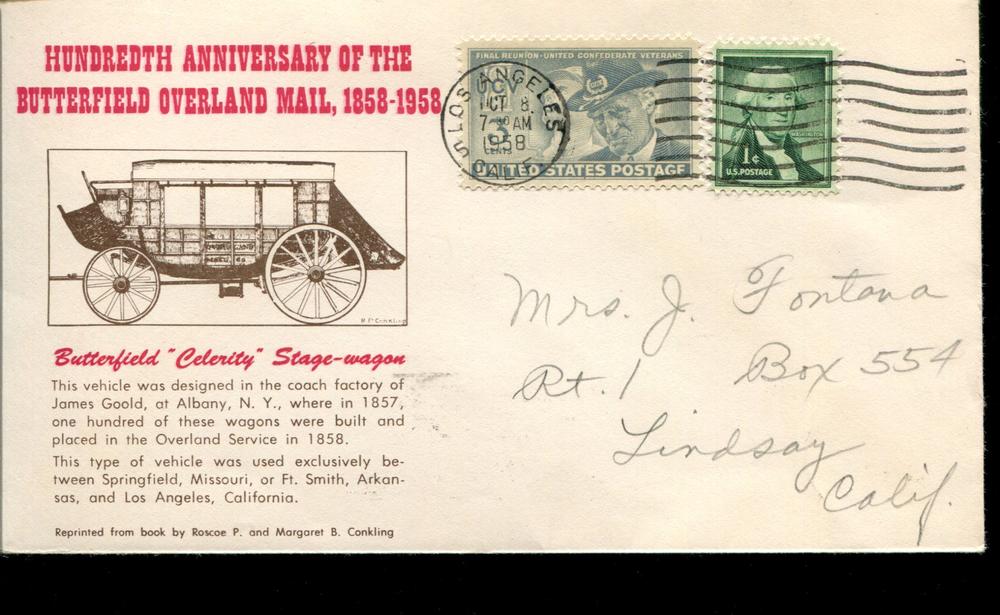 HUNDREDTH ANNIVERSARY OF THE
BUTTERFIELD OVERLAND MAIL, 1858-1958
Butterfield "Celerity" Stage-wagon
This vehicle was designed in the coach factory of
James Goold, at Albany, N. Y., where in 1857,
one hundred of these wagons were built and
placed in the Overland Service in 1858.
This type of vehicle was used exclusively be-
tween Springfield, Missouri, or Ft. Smith, Arkan-
sas, and Los Angeles, California.
Reprinted from book by Roscoe P. and Margaret B. Conkling
FINAL REUNION · UNITED CONFEDERATE VETERANS
UCV
3
CENTS
UNITED STATES POSTAGE
LOS ANGELES
OCT 8
7-30 AM
1958
CALIF.
WASHINGTON
1¢
U.S. POSTAGE
Mrs. J. Fontana
Rt. 1 Box 554
Lindsay
Calif.